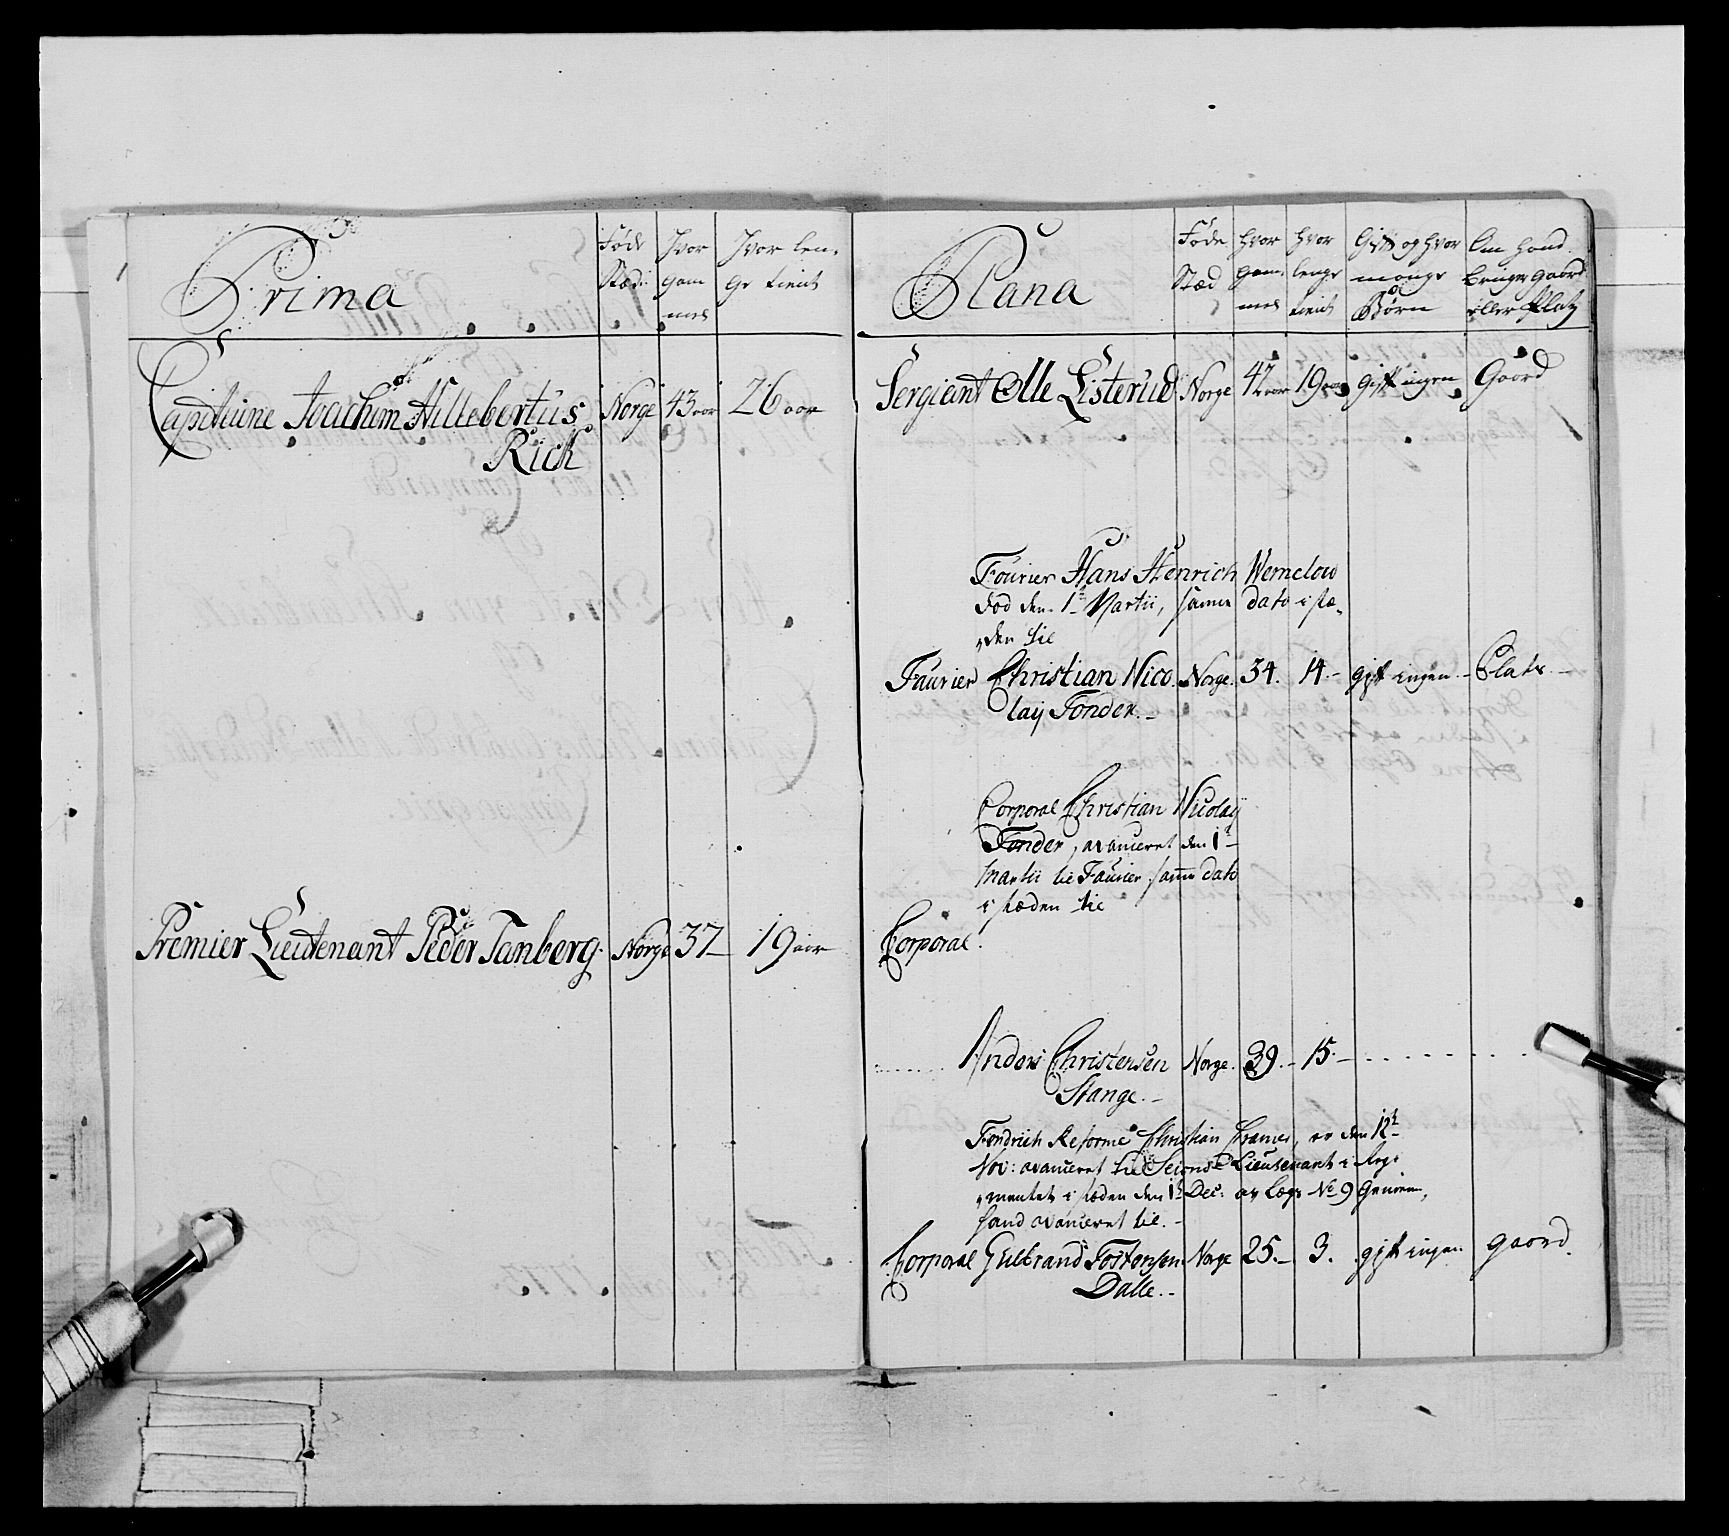 Prima
Føde Stæd
Hvor gam mel
Hvor len- ge tient
Capitaine Joachem Hillebertus Norge 43 aar 26 aar
Rich
Premier Lieutenant Peder Tanberg. Norge 37 19 aar
Plana
Føde Stæd
hvor gam- mel
hvor lenge tient
Gift og hvor mange Børn
Om hand bruger gaard eller Platz
Sergiant Olle Listerud Norge 47 aar 19 aar gift ingen Gaard
Fourier Hans Henrich Wernclow
død den 1te Martii, samme dato i stæ-
den til
Faurier Christian Nico Norge. 34. 14 gift ingen Plats
laij Tonder.
Corporal Christian Nicolaij
Tonder, avanceret den 1te
Martii til Faurier samme dato
i stæden til
Corporal.
Anders Christensen Norge. 39. 15.
Stange.
Fendrich Reformé Christian Cramer, er den 12te
Nov: avanceret til Second Lieutenant i Regi
mentet i stæden den 1te Dec: av Læg No 9
sand avanceret til.
Corporal Gulbrand Tostensen Norge 25. 3. gift ingen gaard.
Dalle.